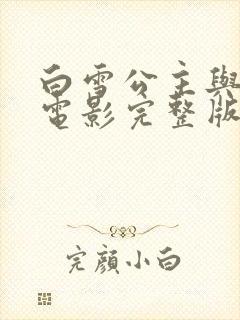 白雪公主與
電影完整版
完顏小白